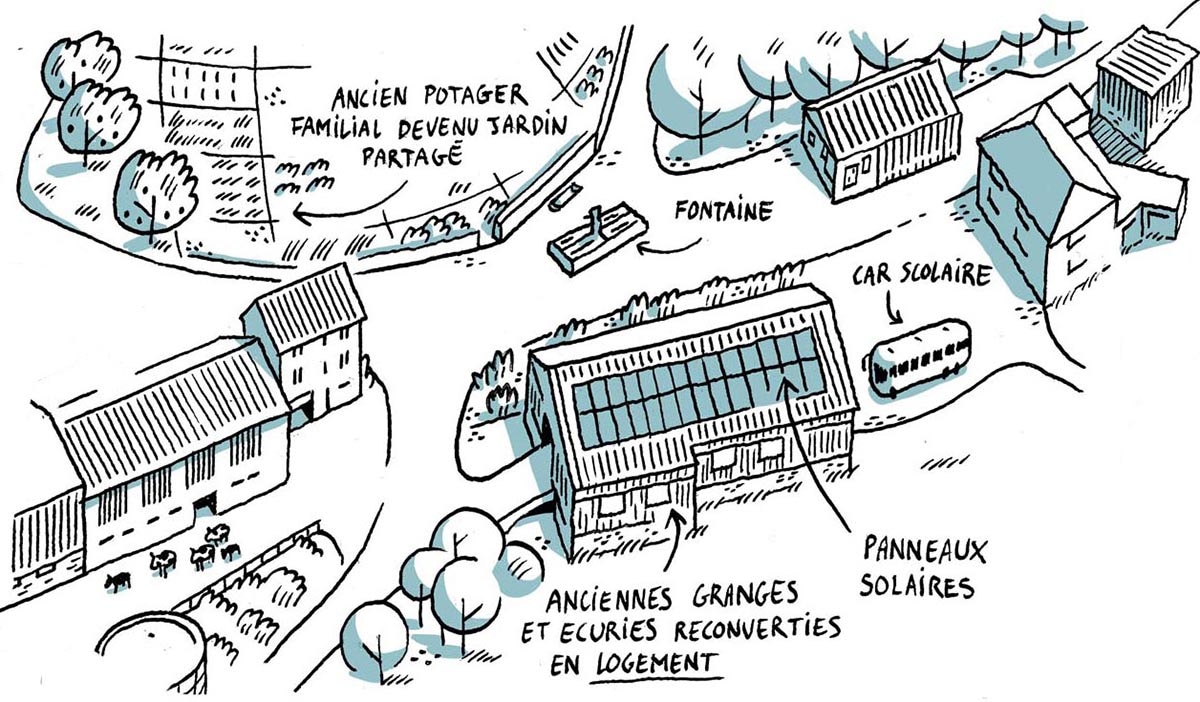 ANCIEN POTAGER
FAMILIAL DEVENU JARDIN
PARTAGÉ
FONTAINE
CAR SCOLAIRE
PANNEAUX
SOLAIRES
ANCIENNES GRANGES
ET ECURIES RECONVERTIES
EN LOGEMENT